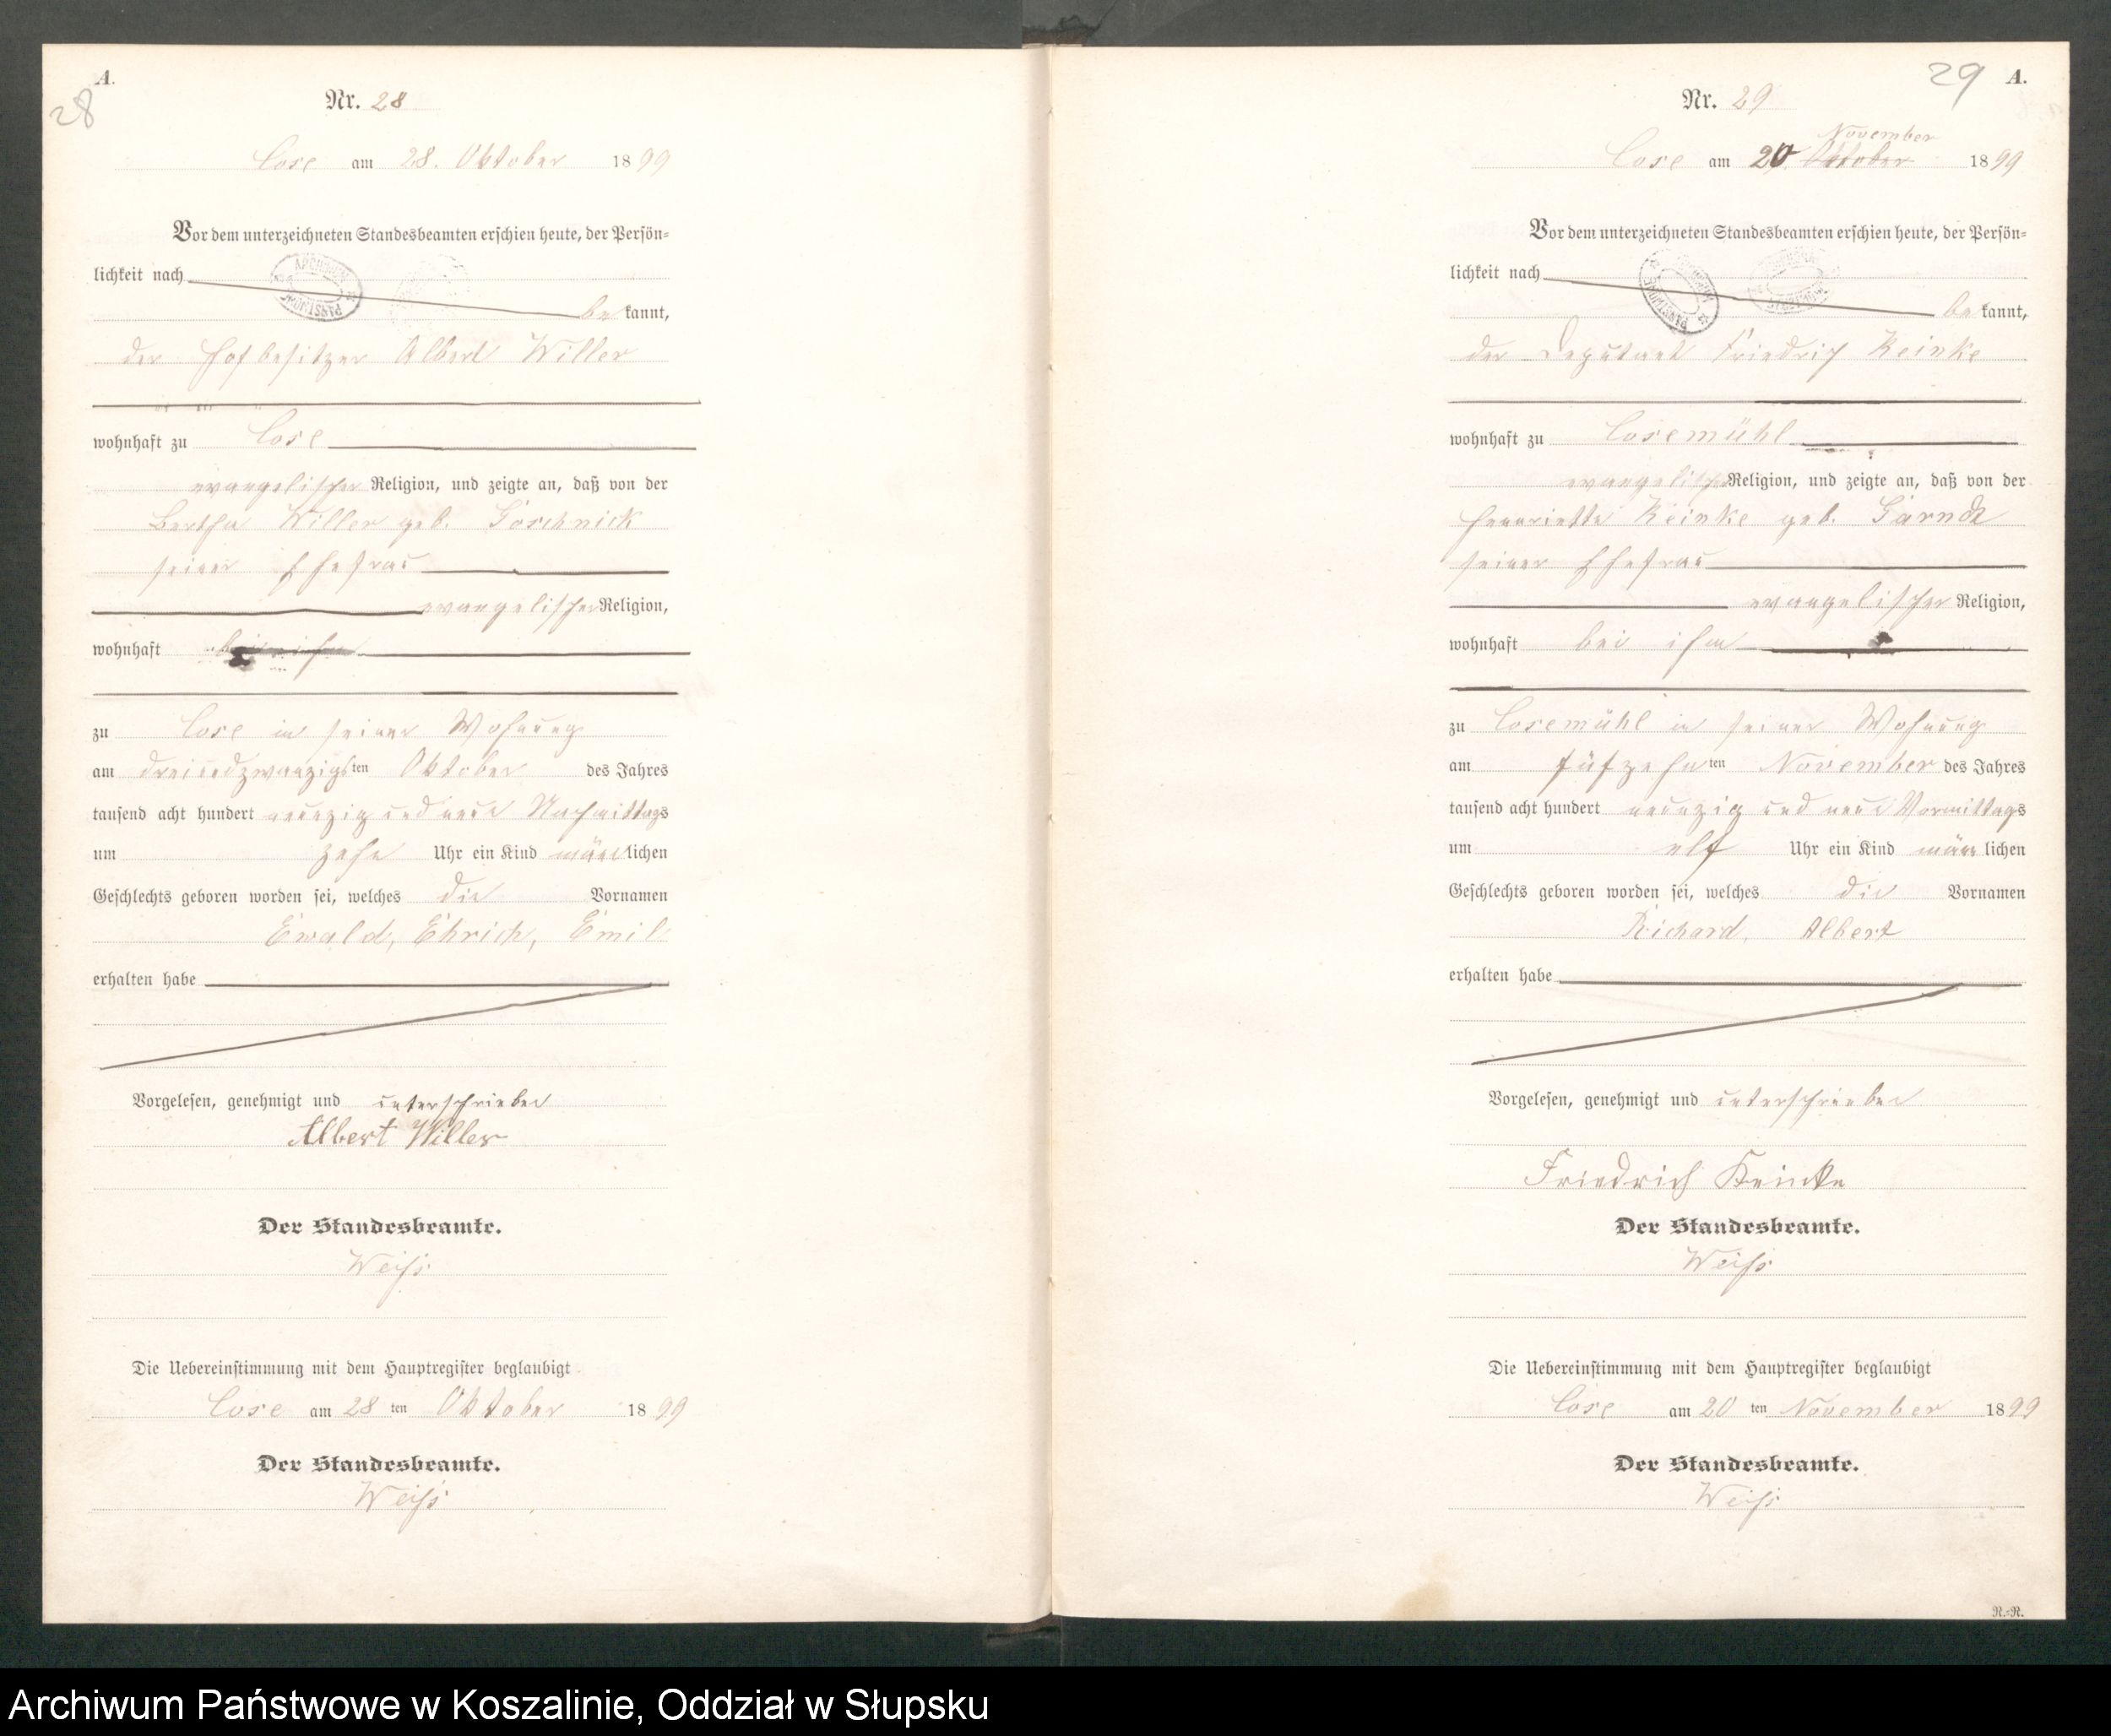 A.
28
Nr. 28
Lose am 28. Oktober 1899
Vor dem unterzeichneten Standesbeamten erschien heute, der Persön-
lichkeit nach
be kannt,
der Hofbesitzer Albert Willer
wohnhaft zu Lose
evangelischer Religion, und zeigte an, daß von der
Bertha Willer geb. Goschnick
seiner Ehefrau
evangelischer Religion,
wohnhaft bei ihm
zu Lose in seiner Wohnung
am dreiundzwanzigsten Oktober des Jahres
tausend acht hundert neunzig und neun Nachmittags
um zehn Uhr ein Kind männlichen
Geschlechts geboren worden sei, welches die Vornamen
Ewald, Ehrich, Emil
erhalten habe
Vorgelesen, genehmigt und unterschrieben
Albert Willer
Der Standesbeamte.
Weiß
Die Uebereinstimmung mit dem Hauptregister beglaubigt
Lose am 28 ten Oktober 1899
Der Standesbeamte.
Weiß
29 A.
Nr. 29
November
Lose am 20. Oktober 1899
Vor dem unterzeichneten Standesbeamten erschien heute, der Persön-
lichkeit nach
be kannt,
der Deputant Friedrich Reinke
wohnhaft zu Losemühl
evangelischer Religion, und zeigte an, daß von der
Henriette Reinke geb.
seiner Ehefrau
evangelischer Religion,
wohnhaft bei ihm
zu Losemühl in seiner Wohnung
am füfzehnten November des Jahres
tausend acht hundert neunzig und neun Vormittags
um elf Uhr ein Kind männlichen
Geschlechts geboren worden sei, welches die Vornamen
Richard, Albert
erhalten habe
Vorgelesen, genehmigt und unterschrieben
Friedrich Reinke
Der Standesbeamte.
Weiß
Die Uebereinstimmung mit dem Hauptregister beglaubigt
Lose am 20 ten November 1899
Der Standesbeamte.
Weiß
R.=R.
Archiwum Państwowe w Koszalinie, Oddział w Słupsku